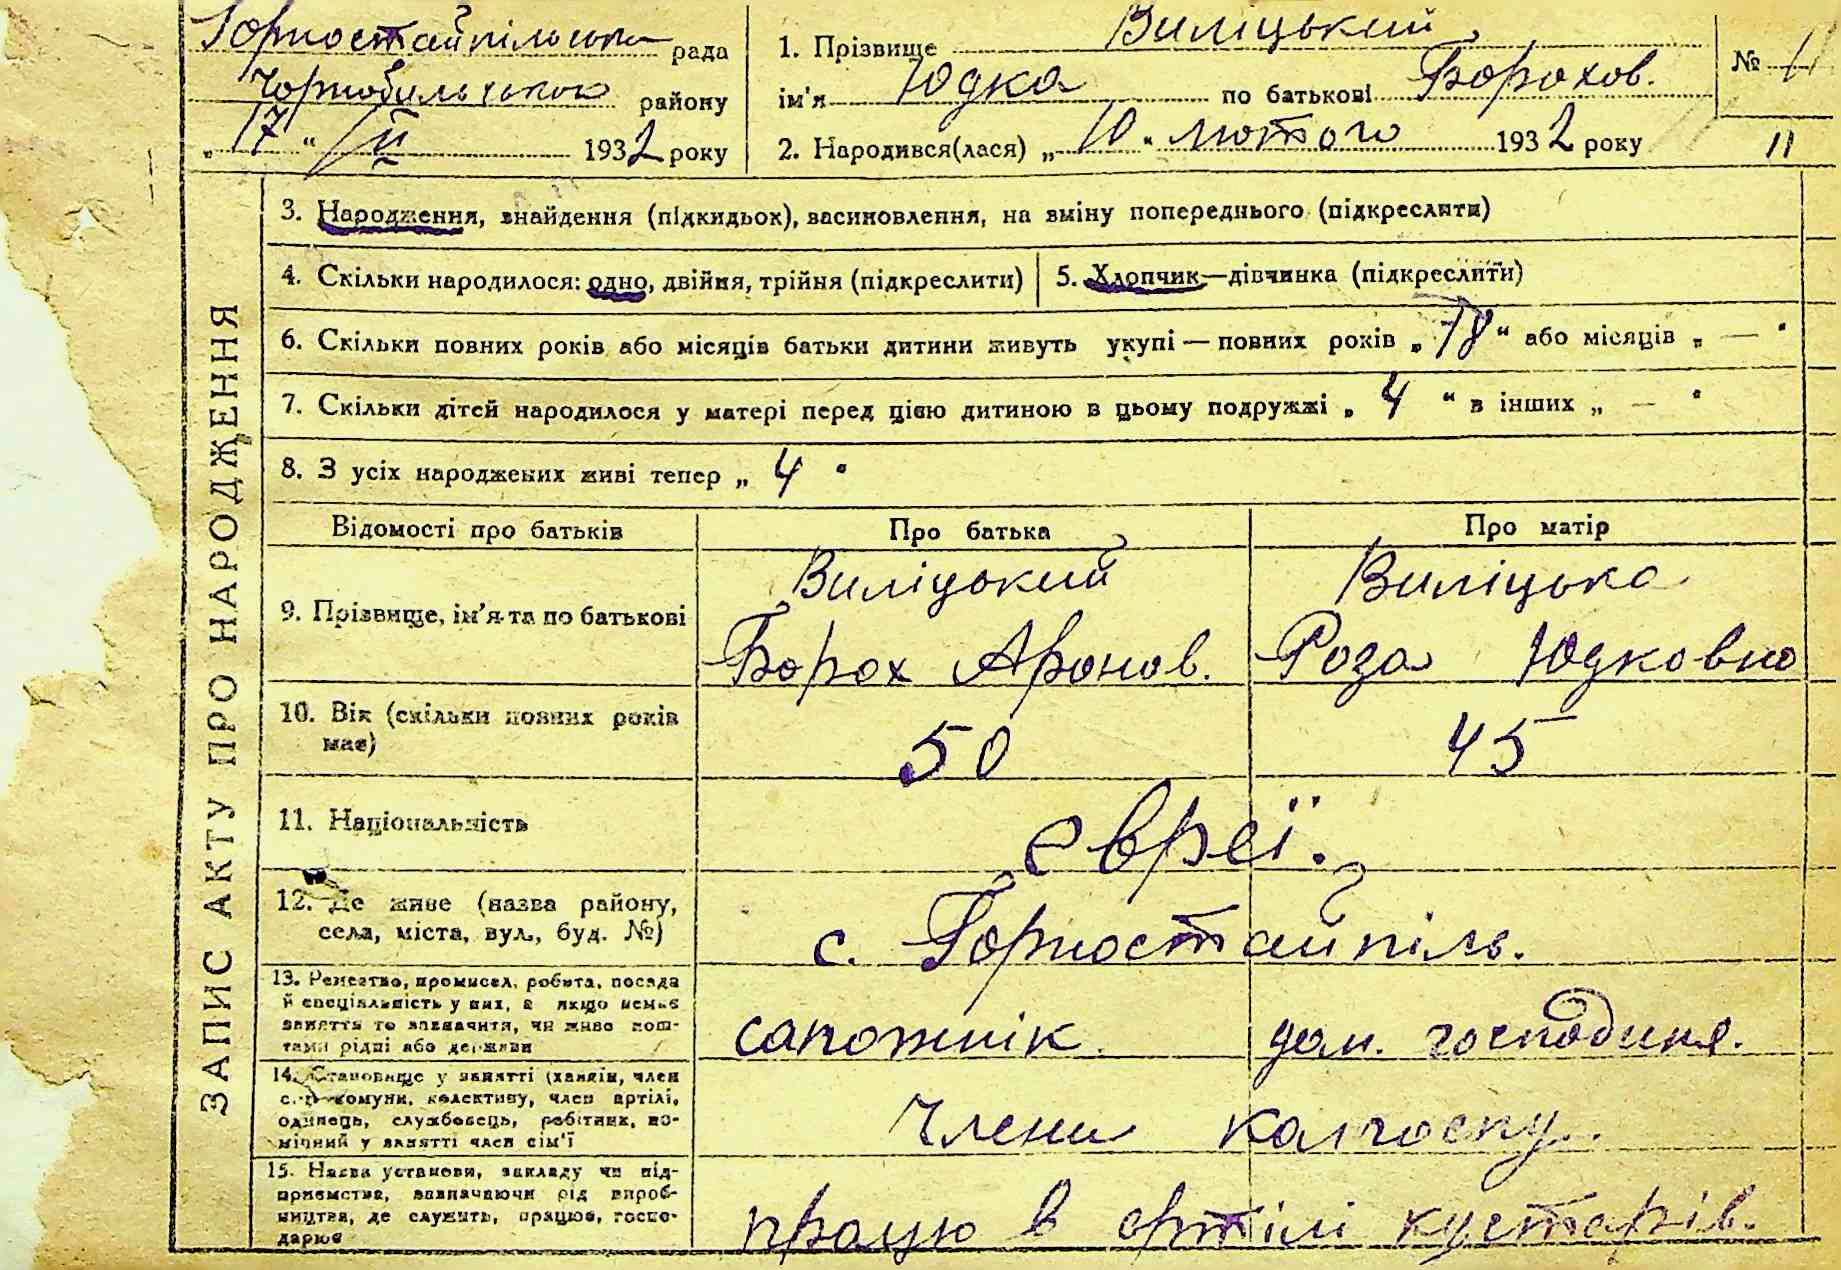 Горностайпільська рада
Чорнобильського району
„ 17 “ /II 1932 року
1. Прізвище Виліцький
ім'я Юдка по батькові Борохов.
2. Народився(лася) „ 10 “ лютого 1932 року
№ 11
11
ЗАПИС АКТУ ПРО НАРОДЖЕННЯ
3. Народження, знайдення (підкидьок), васиновлення, на вміну попереднього (підкреслити)
4. Скільки народилося: одно, двійня, трійня (підкреслити)
5. Хлопчик—дівчинка (підкреслити)
6. Скільки повних років або місяців батьки дитини живуть укупі — повних років „ 18 “ або місяців „ — “
7. Скільки дітей народилося у матері перед цією дитиною в цьому подружжі „ 4 “ в інших „ — “
8. З усіх народжених живі тепер „ 4 “
Відомості про батьків Про батька Про матір
9. Прізвище, ім'я та по батькові
Виліцький
Борох Аронов.
Виліцька
Роза Юдковна
10. Вік (скільки повних років
має)
50
45
11. Національність
євреї.
12. Де живе (назва району,
села, міста, вул., буд. №)
с. Горностайпіль.
13. Ремество, промисел, робота, посада
й спеціяльність у них, а якщо немає
заняття то зазначити, чи живе кош-
тами рідні або держави
сапожнік.
дом. господиня.
14. Становище у занятті (хазяїн, член
с.-г. комуни, колективу, член артілі,
одинець, службовець, робітник, по-
мічний у занятті член сім'ї
Члени колгоспу.
15. Назва установи, закладу чи під-
приємства, зазначаючи рід вироб-
ництва, де служить, працює, госпо-
дарює
працю в артілі кустарів.